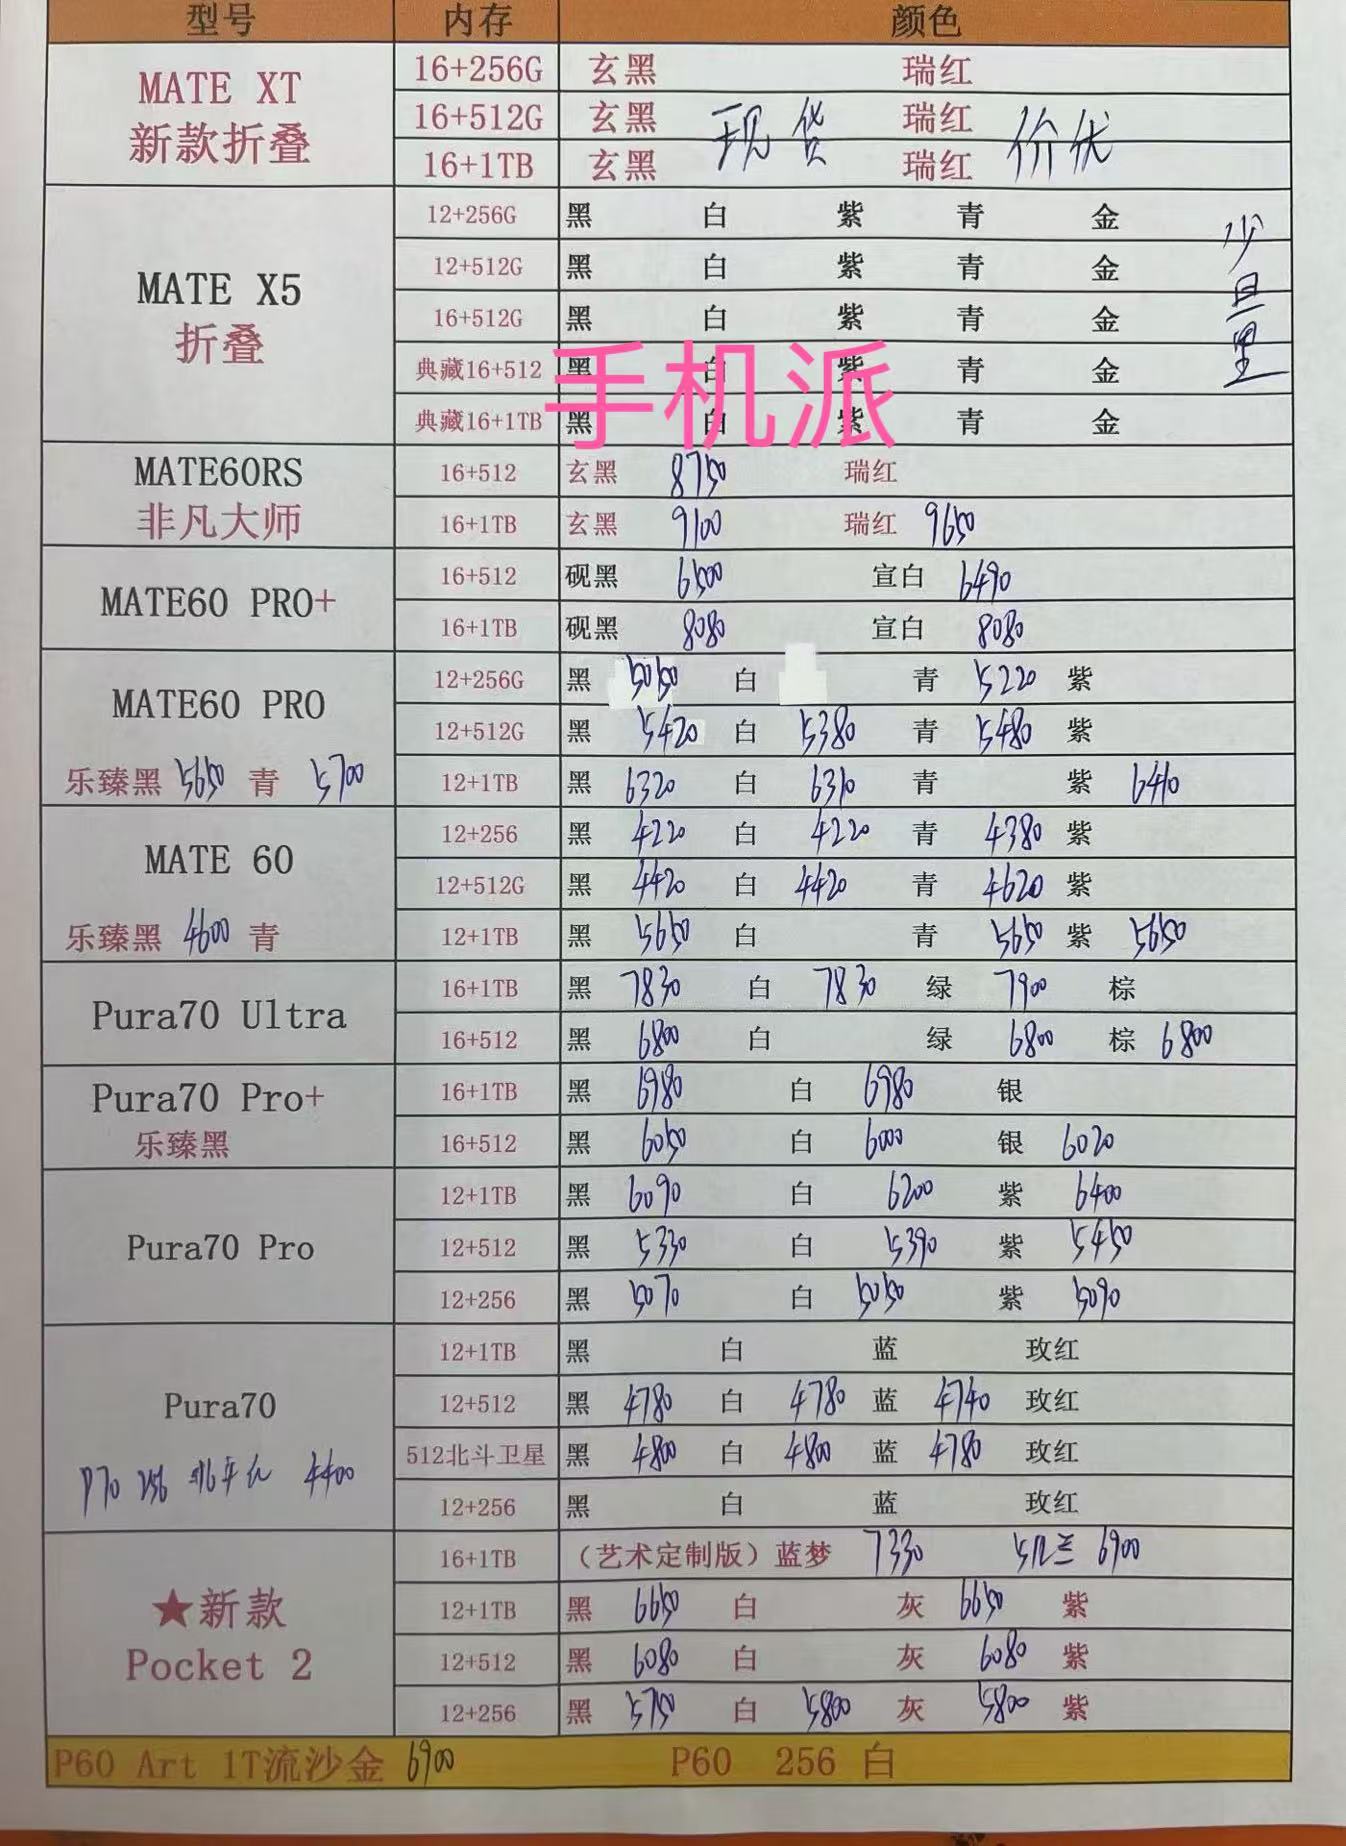 型号 内存 颜色
MATE XT 新款折叠
16+256G 玄黑 瑞红
16+512G 玄黑 现货 瑞红 价优
16+1TB 玄黑 瑞红
MATE X5 折叠
12+256G 黑 白 紫 青 金
12+512G 黑 白 紫 青 金
16+512G 黑 白 紫 青 金
典藏16+512 黑 白 紫 青 金
典藏16+1TB 黑 白 紫 青 金
少量
手机派
MATE60RS 非凡大师
16+512 玄黑 8750 瑞红
16+1TB 玄黑 9100 瑞红 9650
MATE60 PRO+
16+512 砚黑 6500 宣白 6490
16+1TB 砚黑 8080 宣白 8080
MATE60 PRO
12+256G 黑 5050 白 青 5220 紫
12+512G 黑 5420 白 5380 青 5480 紫
乐臻黑 5650 青 5700
12+1TB 黑 6320 白 6310 青 紫 6410
MATE 60
12+256 黑 4220 白 4220 青 4380 紫
12+512G 黑 4420 白 4420 青 4620 紫
乐臻黑 4600 青
12+1TB 黑 5650 白 青 5650 紫 5650
Pura70 Ultra
16+1TB 黑 7830 白 7830 绿 7900 棕
16+512 黑 6800 白 绿 6800 棕 6800
Pura70 Pro+
乐臻黑
16+1TB 黑 6980 白 6980 银
16+512 黑 6050 白 6000 银 6020
Pura70 Pro
12+1TB 黑 6090 白 6200 紫 6400
12+512 黑 5330 白 5390 紫 5450
12+256 黑 5070 白 5050 紫 5090
Pura70
P70 256 北斗 4400
12+1TB 黑 白 蓝 玫红
12+512 黑 4780 白 4780 蓝 4740 玫红
512北斗卫星 黑 4800 白 4800 蓝 4780 玫红
12+256 黑 白 蓝 玫红
★新款
Pocket 2
16+1TB (艺术定制版) 蓝梦 7330 6900
12+1TB 黑 6650 白 灰 6650 紫
12+512 黑 6080 白 灰 6080 紫
12+256 黑 5750 白 5800 灰 5800 紫
P60 Art 1T流沙金 6900 P60 256 白